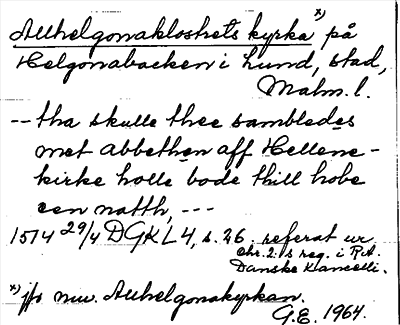 Allhelgonaklostrets kyrka x) på
Helgonabacken i Lund, stad,
Malm. l.
-- tha skulle thee sambledes
met abbethen aff Hellene-
kirke holle bode thill hobe
een natth, ---
1514 29/4 DGKL 4, s. 26. referat ur
Chr. 2:s reg. i Rit.
Danske Kancelli.
x) jfr nuv. Allhelgonakyrkan.
G.E. 1964.